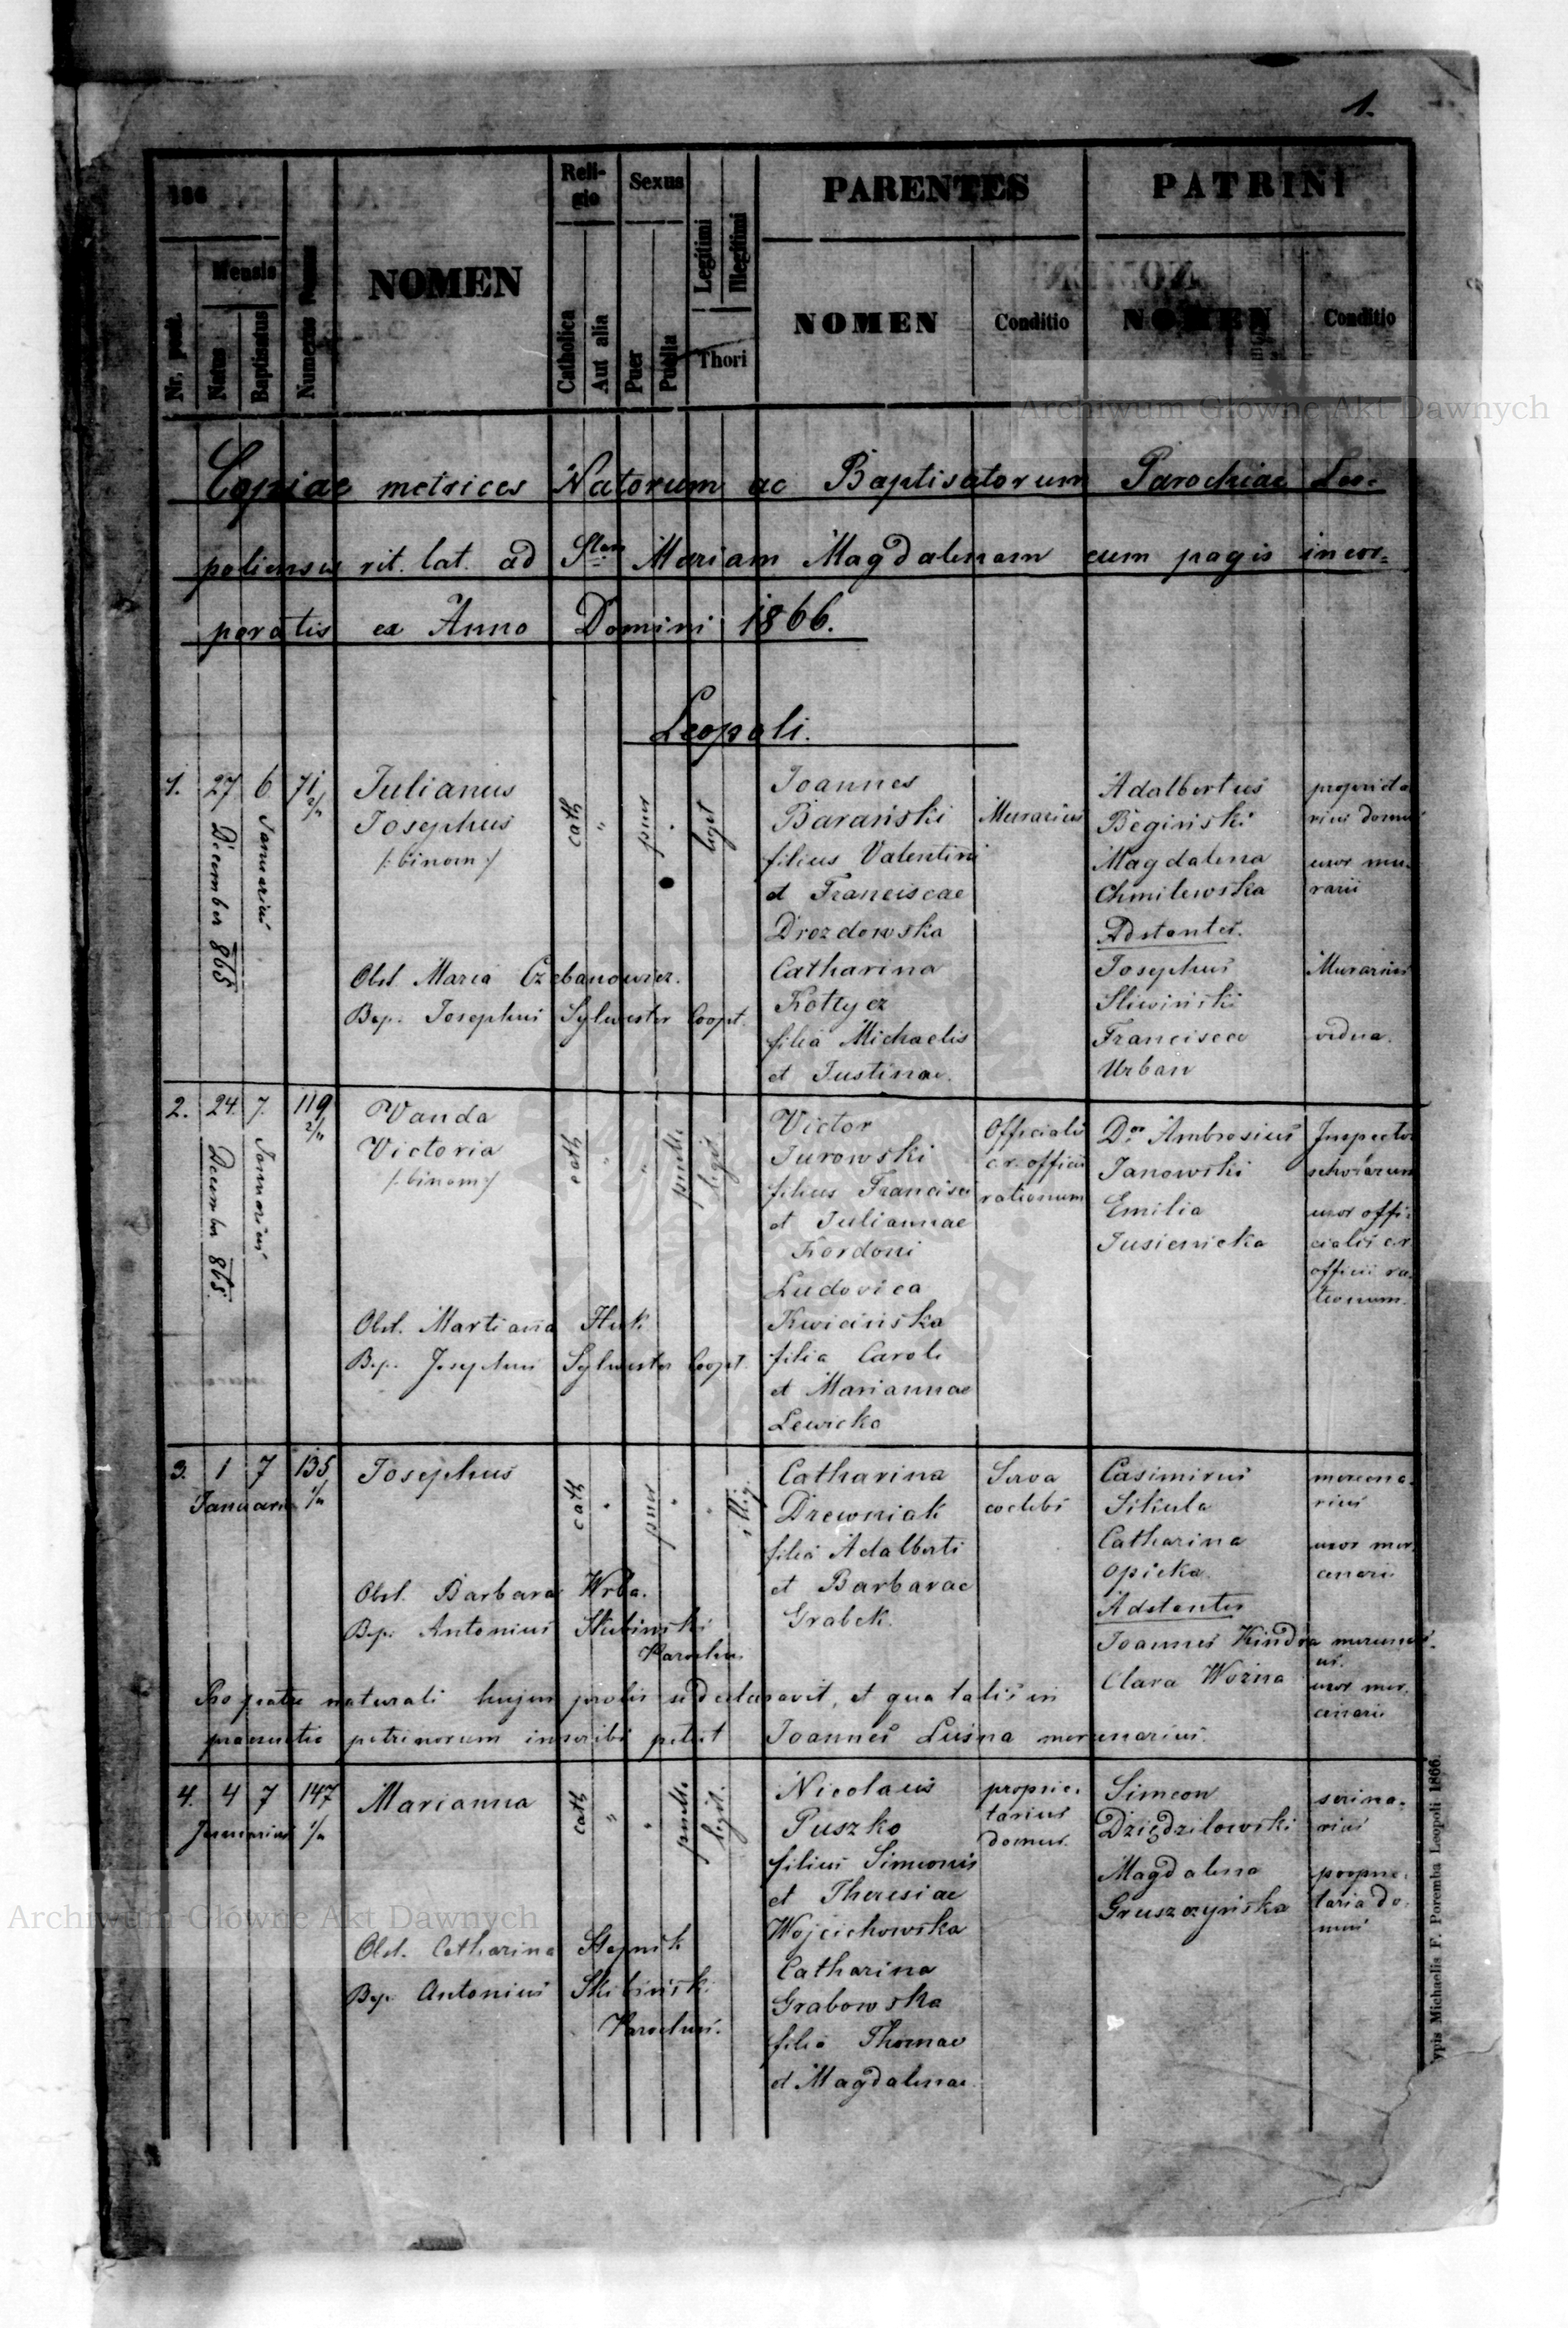 1.
186
Nr. posit.
Mensis
Natus
Baptisatus
Numerus Domus
NOMEN
Reli-
gio
Catholica
Aut alia
Sexus
Puer
Puella
Legitimi
Illegitimi
Thori
PARENTES
NOMEN
Conditio
PATRINI
NOMEN
Conditio
Copiae metrices Natorum ac Baptisatorum Parochiae Leo-
poliensis rit. lat. ad Stam Mariam Magdalenam cum pagis incor=
poratis ex Anno Domini 1866.
Leopoli.
1. 27 6 71 2/4
December 865
Januarius
Julianus
Josephus
/:binom:/
Obst. Maria Czebanowicz.
Bap. Josephus Sylwester Coopt.
cath " puer " legit
Joannes
Barański
filius Valentini
et Franciscae
Drozdowska
Catharina
Kottycz
filia Michaelis
et Justinae.
Murarius
Adalbertus
Begiński
Magdalena
Chmilewska
Adstantes.
Josephus
Sliwiński
Francisca
Urban
proprieta
rius domus
uxor mu-
rarii
Murarius
vidua.
2. 24. 7. 119 2/4
December 865.
Januarius
Wanda
Victoria
/:binom:/
Obst. Martianna Huk
Bap. Josephus Sylwester Coopt.
cath " " puella legit
Victor
Jurowski
filius Francisci
et Juliannae
Kordoni
Ludovica
Kwicińska
filia Caroli
et Mariannae
Lewicka
Officialis
c.r. officii
rationum
Dor Ambrosius
Janowski
Emilia
Jusienicka
Inspector
scholarum
uxor offi-
cialis c.r.
officii ra-
tionum.
3. 1 7 135 1/4
Januarius
Josephus
Obst. Barbara Wrba.
Bap. Antonius Skibiński
Parochus
cath " puer " " illig
Catharina
Drewniak
filia Adalberti
et Barbarae
Grabek.
Serva
coelebs
Casimirus
Sikula
Catharina
Opicka.
Adstantes
Joannes Kindra mercenari-
us.
Clara Woźna
mercena-
rius
uxor mer-
cenarii
uxor mer-
cenarii
Pro patre naturali hujus prolis se declaravit, et qua talis in
praesentia patrinorum inscribi petiit Joannes Lusna mercenarius.
4. 4 7 147 1/4
Januarius
Marianna
Obst. Catharina Stapnik
Bap. Antonius Skibiński
Parochus.
cath " " puella legit.
Nicolaus
Puszko
filius Simeonis
et Theresiae
Wojciechowska
Catharina
Grabowska
filia Thomae
et Magdalenae.
proprie-
tarius
domus.
Simeon
Dziędzilowski
Magdalena
Gruszczyńska
scrina-
rius
proprie-
taria do-
mus
ypis Michaelis F. Poremba Leopoli 1866.
Archiwum Główne Akt Dawnych
Archiwum Główne Akt Dawnych